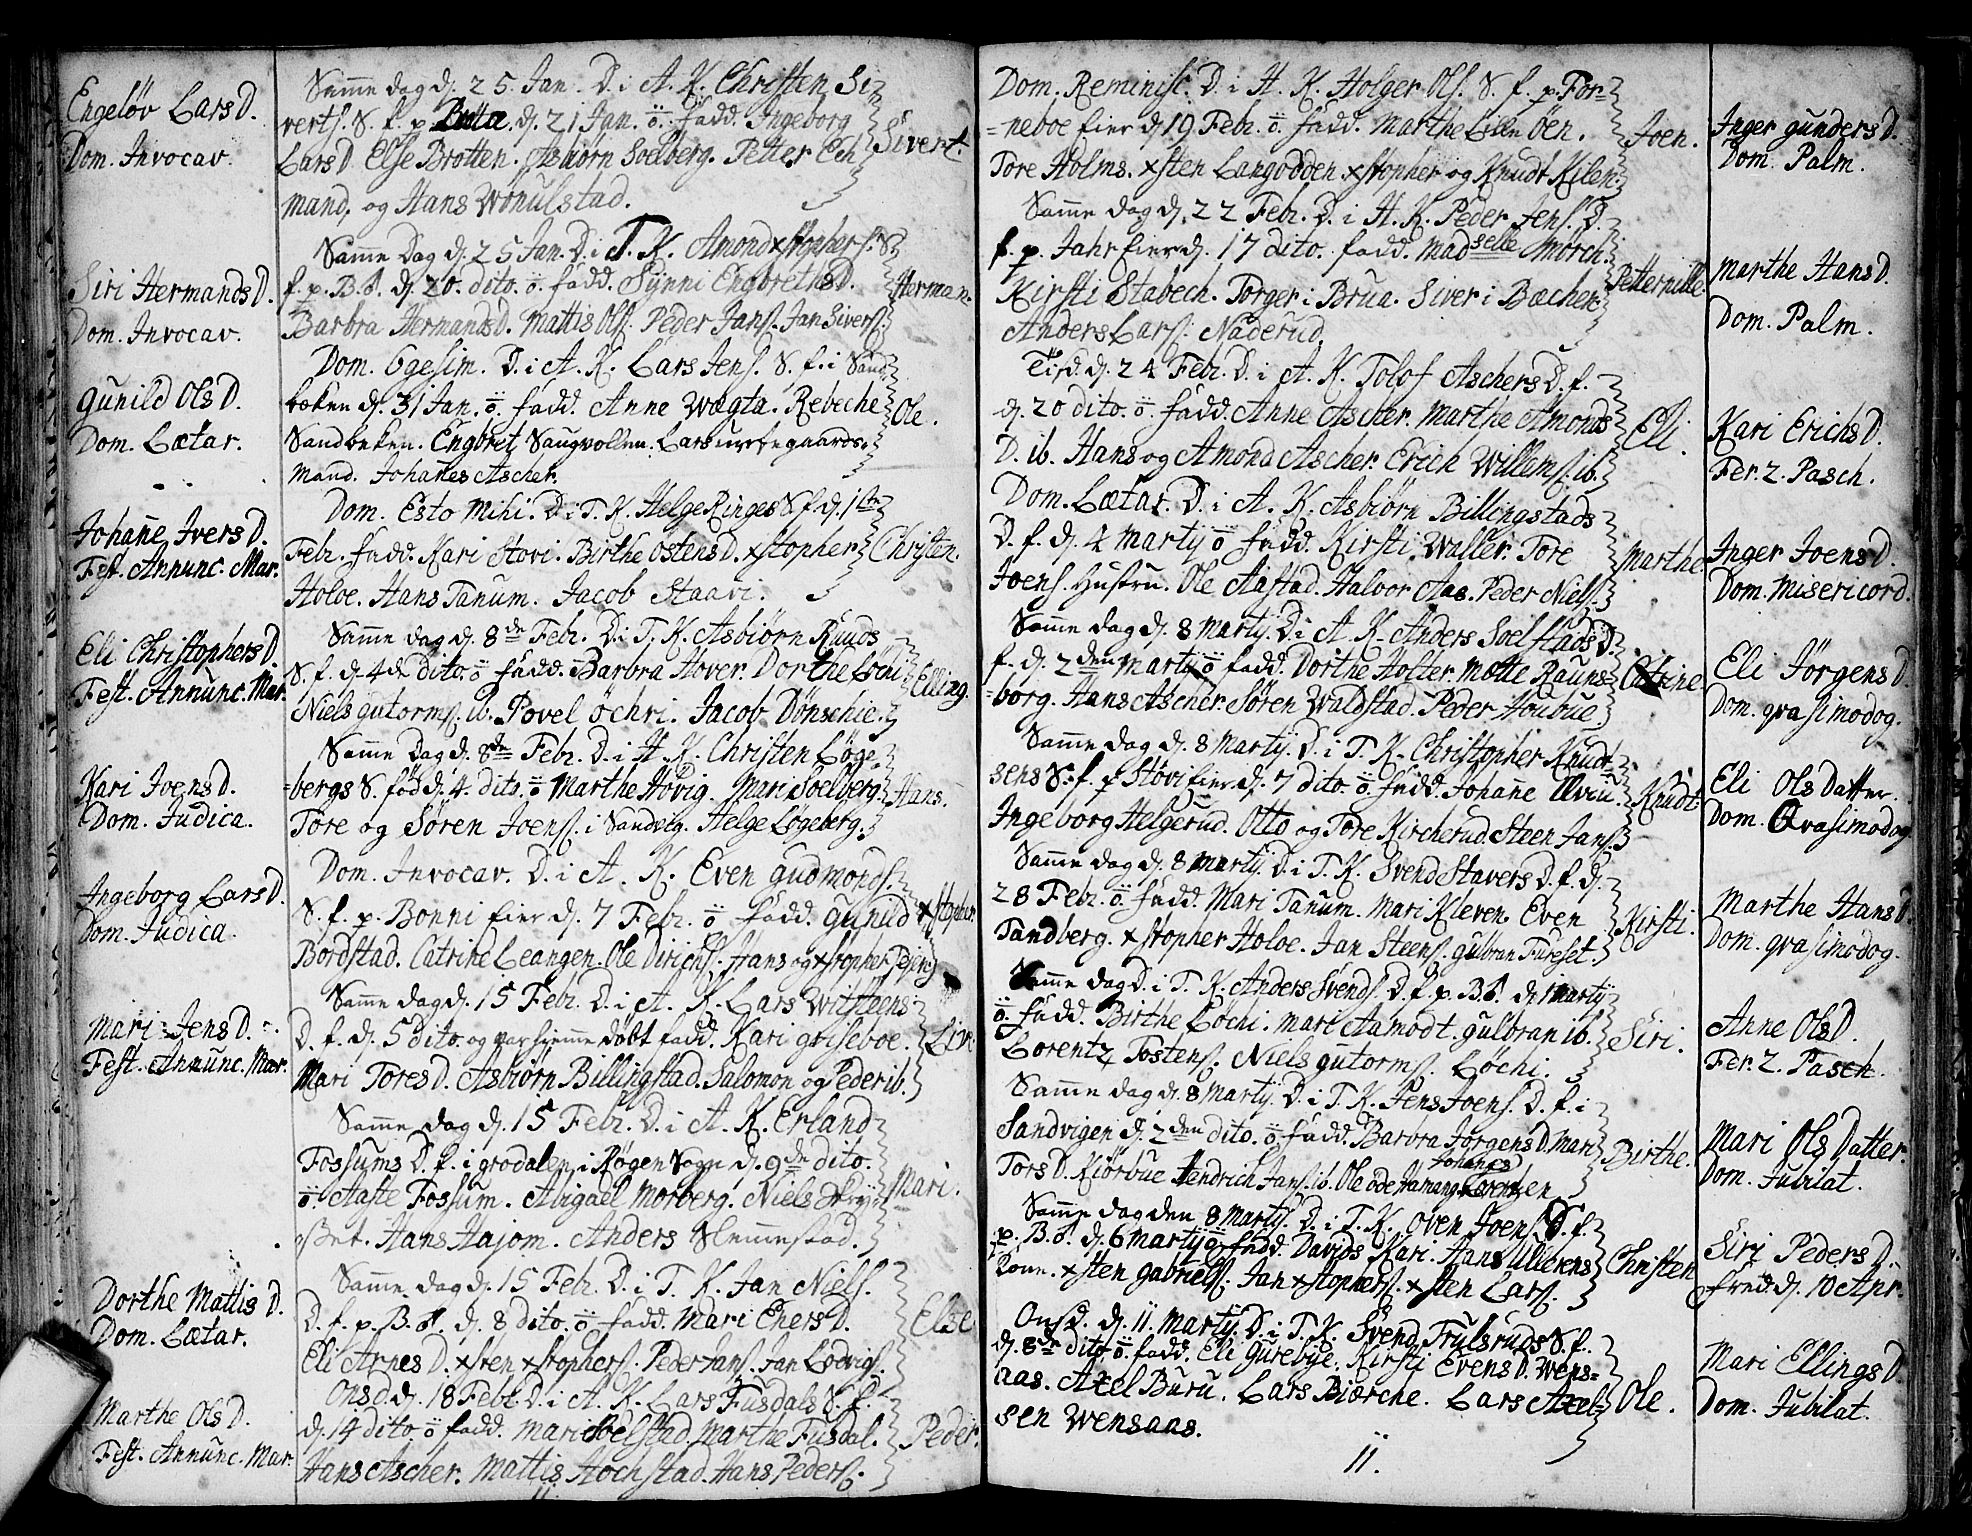 Engeløv Lars D.
Dom. Invocav.
Siri Hermands D.
Dom. Invocav.
Gunild Ols D.
Dom. Lætar.
Johane Ivers D.
Fest. Annunc. Mar.
Eli Christophers D.
Fest. Annunc. Mar.
Kari Joens D.
Dom. Judica.
Ingeborg Lars D.
Dom. Judica.
Mari Jens D.
Fest. Annunc. Mar.
Dorthe Mattis D.
Dom. Lætar.
Marthe Ols D.
Fest. Annunc. Mar.
Same dag d. 25 Jan. D. i A. K. Christen Si
verts. S. f. p. d. 21 Jan. ö. fadd. Ingeborg
Lars D. Else Brotten. Asbiorn Soelberg. Petter Ech
mand, og Hans Wonulstad.
Sivert.
Same Dag d. 25 Jan. D. i T. K. Amond xstophers. S.
f. p. B. d. 20. dito. ö. fadd. Synni Engbreths D.
Barbra Hermands D. Mattis Ols. Peder Jans. Jan Sivers.
Herman.
Dom. 6gesim. D. i A. K. Lars Jens. S. f. i Sand
beken d. 31 Jan. ö. fadd. Anne Wægta. Rebeche
Sandbeken. Engbret Saugvollen. Lars gaards
mand. Johanes Ascher.
Ole.
Dom. Esto Mihi. D. i T. K. Helge Ringes S. f. d. 1ste
Febr. fadd. Kari Stovi. Birthe Ostens D. xstopher
Holoe. Hans Tanum. Jacob Staavi.
Christen.
Same dag d. 8de Febr. D. i T. K. Asbiørn Ruuds
S. f. d. 4de dito. ö fadd. Barbra Hover. Dorthe Løchi
Niels Gutorms. ib. Povel Øchri. Jacob Dønschie.
Elling.
Same Dag d. 8de Febr. D. i H. K. Christen Løge
=bergs S. fød d. 4. dito. ö Marthe Høvig. Mari Soelberg.
Tore og Søren Joens. i Sandvig. Helge Løgeberg.
Hans.
Dom. Invocav. D. i A. K. Even Gudmonds.
S. f. p. Bonni eier d. 7 Febr. ö fadd. Gunild
Bordstad. Catrine Leangen. Ole Dirichs. Hans og xstopher
xstopher.
Same dag d. 15 Febr. D. i A. K. Lars Wittteens
D. f. d. 5 dito. og var hiemme døbt fadd. Kari Griseboe.
Mari Tores D. Asbiørn Billingstad. Salomon og Peder ib.
Live
Same dag d. 15 Febr. D. i A. K. Erland
Fossums D. f. i Grodalen i Røgen Sogn d. 9de dito.
ö. Aaste Fossum. Abigael Morberg. Niels Skry=
Hans Hajom. Anders Slemmestad.
Mari.
Same dag d. 15 Febr. D. i T. K. Jan Niels.
D. f. p. B. d. 8 dito. ö fadd. Mari Ehers D.
Eli Arnes D. xsten xstophers. Peder Jans. Jan Lodvigs.
Else
Onsd. d. 18 Febr. D. i A. K. Lars Fusdals S. f.
d. 14 dito. ö fadd. Mari Soelstad. Marthe Fusdal.
Hans Ascher. Mattis Hochstad. Hans Peders.
Peder.
11.
Dom. Reminisc. D. i H. K. Holger Ols. S. f. p. For=
=neboe eier d. 19 Febr. ö. fadd. Marthe Lillen Oen.
Tore Holms. xsten Langodden xstopher og Knudt Kilen.
Joen.
Same dag d. 22 Febr. D. i H. K. Peder Jens. D.
f. p. Jahr eier d. 17 dito. fadd. Madselle Mörch.
Kirsti Stabech. Torger i Brua. Siver i Bæchen.
Anders Lars. Naderud.
Petternille
Tisd. d. 24 Febr. D. i A. K. Tolof Aschers D. f.
d. 20 dito. ö. fadd. Anne Ascher. Marthe Amonds
D. ib. Hans og Amond Ascher. Erich Willems. ib.
Eli.
Dom. Lætar. D. i A. K. Asbiørn Billingstads
D. f. d. 4 Martij ö fadd. Kirsti Waller. Tore
Joens. Hustru. Ole Aastad. Halvor Aas. Peder Niels.
Marthe
Same dag d. 8 Martij. D. i A. K. Anders Soelstads D.
f. d. 2den Martij ö fadd. Dorthe Holter. Mette Rauns
=borg. Hans Ascher. Søren Waldstad. Peder Houbue.
Catrine
Same dag d. 8 Martij. D. i T. K. Christopher Knudt
sens S. f. p. Støvi eier d. 7 dito. ö. fadd. Johane Ulven.
Ingeborg Helgerud. Otto og Tore Kircherud. Steen Jans.
Knudt
Same dag d. 8 Martij. D. i T. K. Svend Stavers D. f. d.
28 Febr. ö. fadd. Mari Tanum. Mari Kleven. Even
Tandberg. xstopher Holoe. Jan Steens. Gulbran Fureset.
Kirsti.
Same dag D. i T. K. Anders Svends. D. f. p. B. d. 1 Martij
ö. fadd. Birthe Løchi. Mari Aamodt. Gulbran ib.
Lorentz Tostens. Niels Gutorms. Løchi.
Siri.
Same dag d. 8 Martij. D. i T. K. Jens Joens. D. f. i
Sandvigen d. 2den dito. ö. fadd. Barbra Jorgens D. Mari
Tors D. Kiørbue Hendrich Jans. ib. Ole Ødehamang Johanes Lorentzen
Birthe.
Same dag den 8 Martij. D. i T. K. Oven Joens. D. f.
p. B. d. 6 Martij ö. fadd. Davids Kari. Hans Ullerens
Kone. xsten Gabriels. Jan xstophers. xsten Lars.
Christen
Onsd. d. 11. Martij. D. i T. K. Svend Trulsruds S. f.
d. 8de dito ö. fadd. Eli Gurebye. Kirsti Evens D. Wens=
aas. Axel Buru. Lars Biærche. Lars Axel=
sen Wensaas.
Ole.
11.
Inger Gunders D.
Dom. Palm.
Marthe Hans D.
Dom. Palm.
Kari Erichs D.
Fer. 2. Pasch.
Inger Joens D.
Dom. Misericord.
Eli Jörgens D.
Dom. Qvasimodog.
Eli Ols Datter.
Dom. Qvasimodog
Marthe Hans D.
Dom. Qvasimodog.
Anne Ols D.
Fer. 2. Pasch.
Mari Ols Datter.
Dom. Jubilat.
Siri Peders D.
fred. d. 10 Apr.
Mari Ellings D.
Dom. Jubilat.